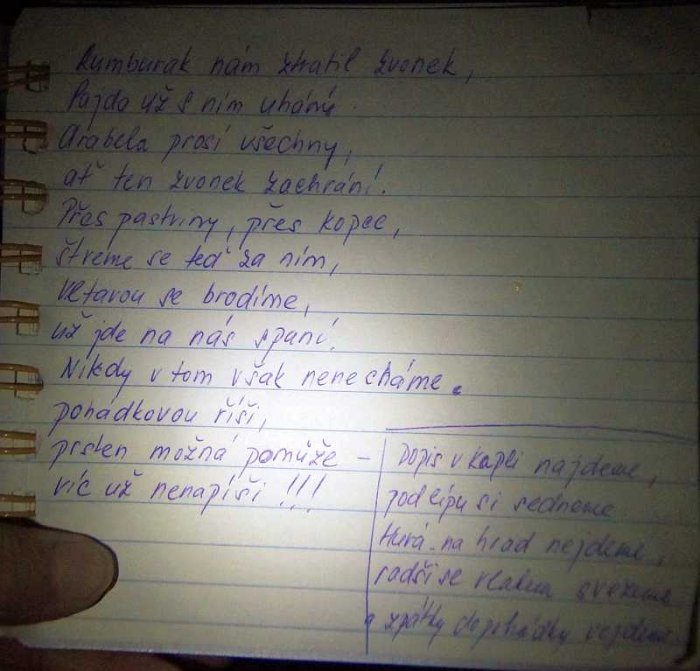 Rumburak nám ztratil zvonek,
Pajda už s ním uhání.
Arabela prosí všechny,
ať ten zvonek zachrání.
Přes pastviny, přes kopec,
štreme se teď za ním,
Vltavou se brodíme,
už jde na nás spaní.
Nikdy v tom však nenecháme
pohádkovou říši,
prsten možná pomůže –
víc už nenapíši!!!
Dopis v kapli najdeme,
pod lípu si sedneme
Hurá na hrad nejdeme,
radši se vlakem svezeme
a zpátky do pohádky vejdeme